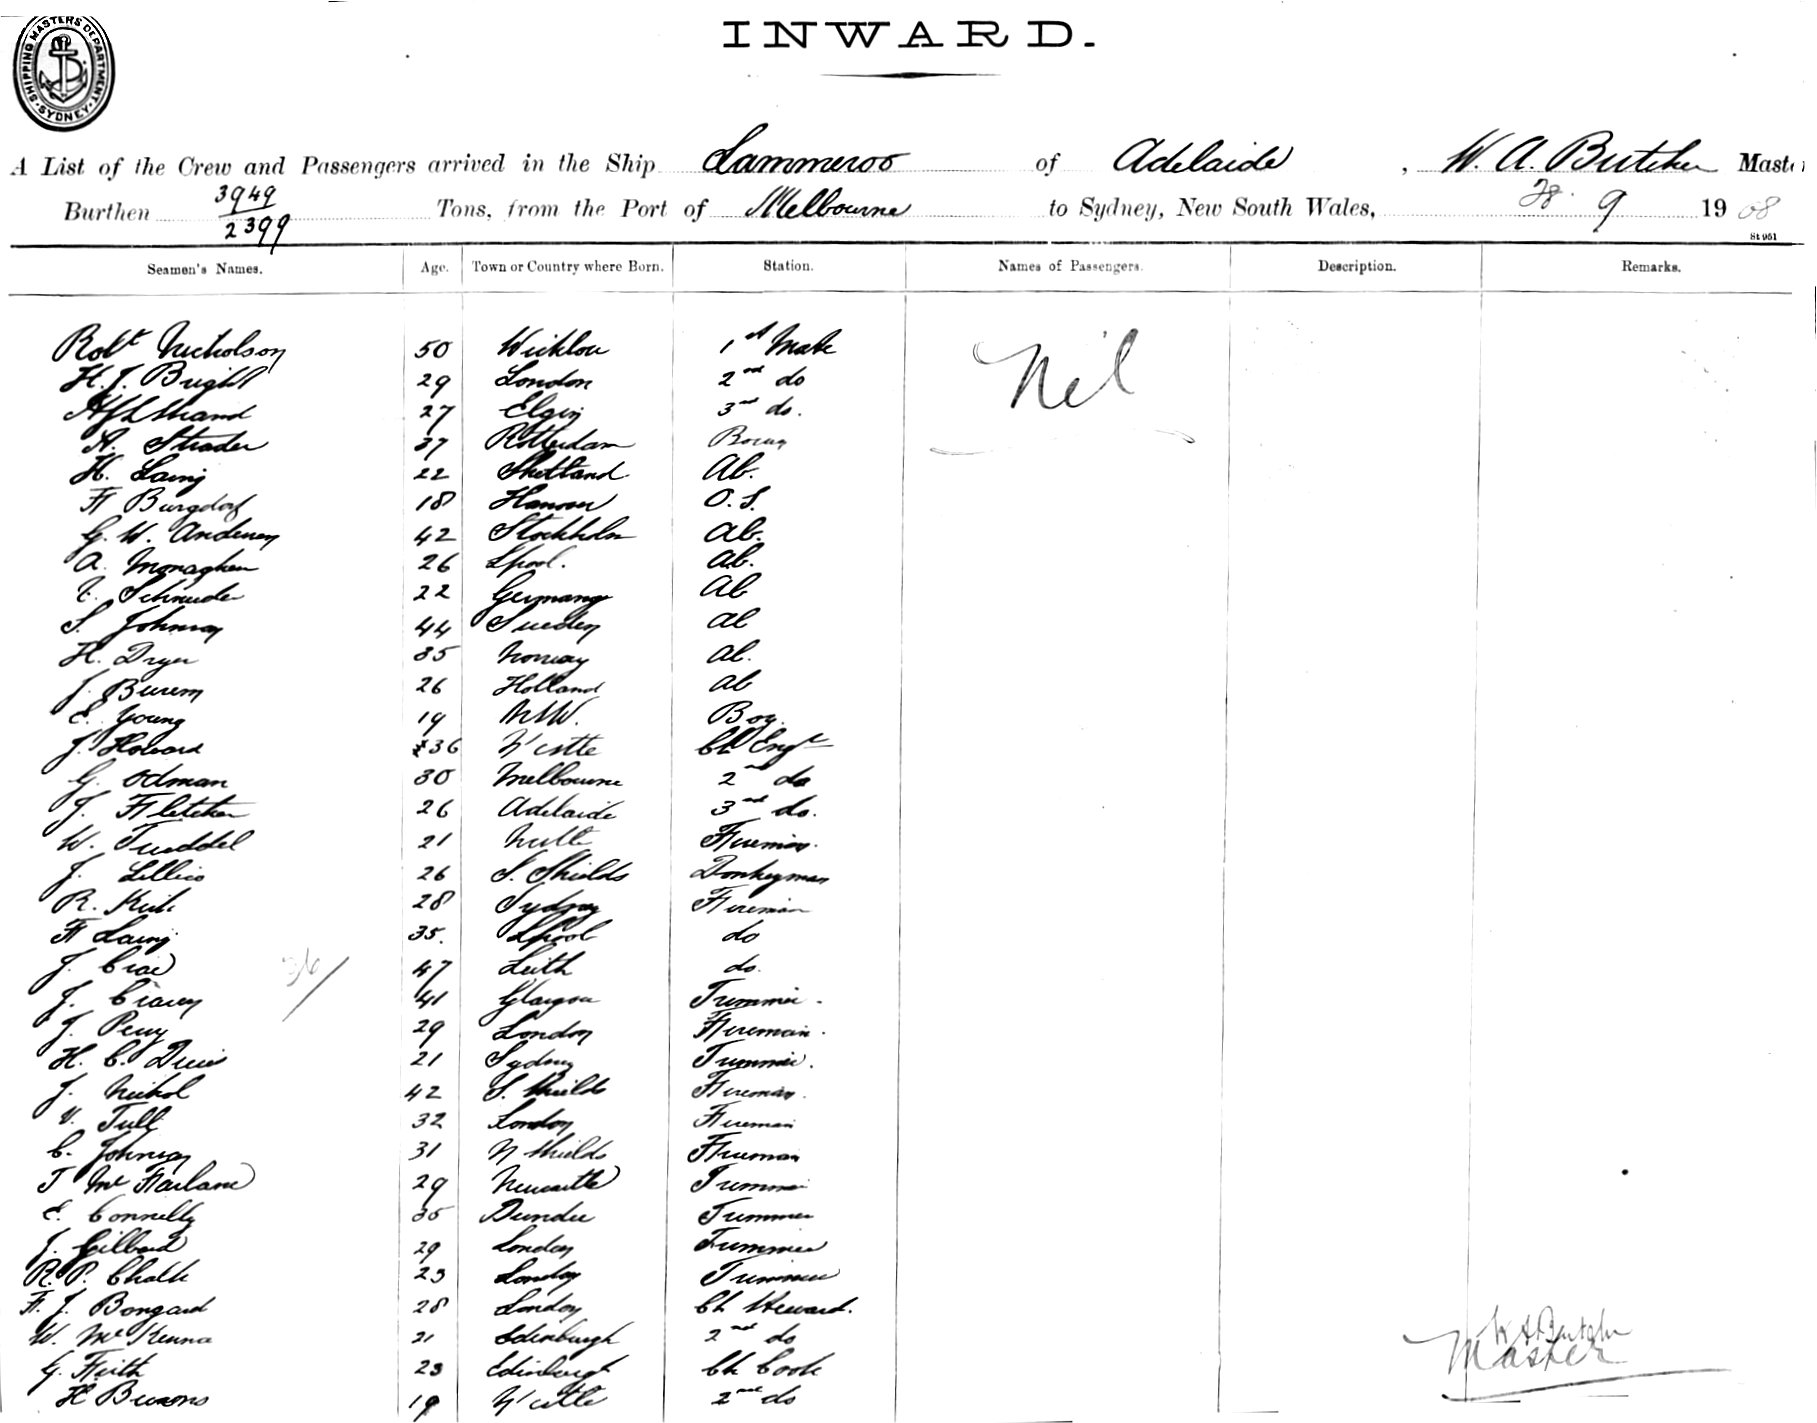 SHIPPING MASTERS DEPARTMENT. SYDNEY
INWARD.
A List of the Crew and Passengers arrived in the Ship Lammeroo of Adelaide, W. A. Butcher Master
Burthen 3949/2399 Tons, from the Port of Melbourne to Sydney, New South Wales, 28. 9 1908
St 951
Seamen's Names. Age. Town or Country where Born. Station. Names of Passengers. Description. Remarks.
Robt Nicholson 50 Wicklow 1st Mate Nil
H. J. Bright 29 London 2nd do
27 Elgin 3rd do.
A. Strader 37 Rotterdam Bosun
H. Laing 22 Shetland Ab.
F Burgdorf 18 Hanover O.S.
G. W. Andersen 42 Stockholm Ab.
A. Monaghan 26 Lpool. Ab.
Schneider 22 Germany Ab
S. Johnson 44 Sweden Ab
H. Dryer 35 Norway Ab.
J. Burem 26 Holland Ab
E. Young 19 NSW. Boy.
J. Howard 36 N'castle Ch Engr
G. Odman 30 Melbourne 2nd do
J. Fletcher 26 Adelaide 3rd do.
W. Tweddel 21 Fireman.
J. Lillico 26 S. Shields Donkeyman
R. 28 Sydney Fireman
F Laing 35. Lpool do
J. Crae 47 Leith do.
J. 41 Glasgow Trimmer.
J. Perry 29 London Fireman.
H. C. 21 Sydney Trimmer.
J. Nichol 42 S. Shields Fireman.
V. Tull 32 London Fireman
C. Johnson 31 N Shields Fireman
T McFarlane 29 Newcastle Trimmer
E. Connelly 35 Dundee Trimmer
J. Gilbard 29 London Trimmer
R. P. Chalk 23 London Trimmer
F. J. Bongard 28 London Ch Steward.
W. McKenna 21 Edinburgh 2nd do
G. Firth 23 Edinburgh Ch Cook
H 19 N'castle 2nd do
W A Butcher
Master